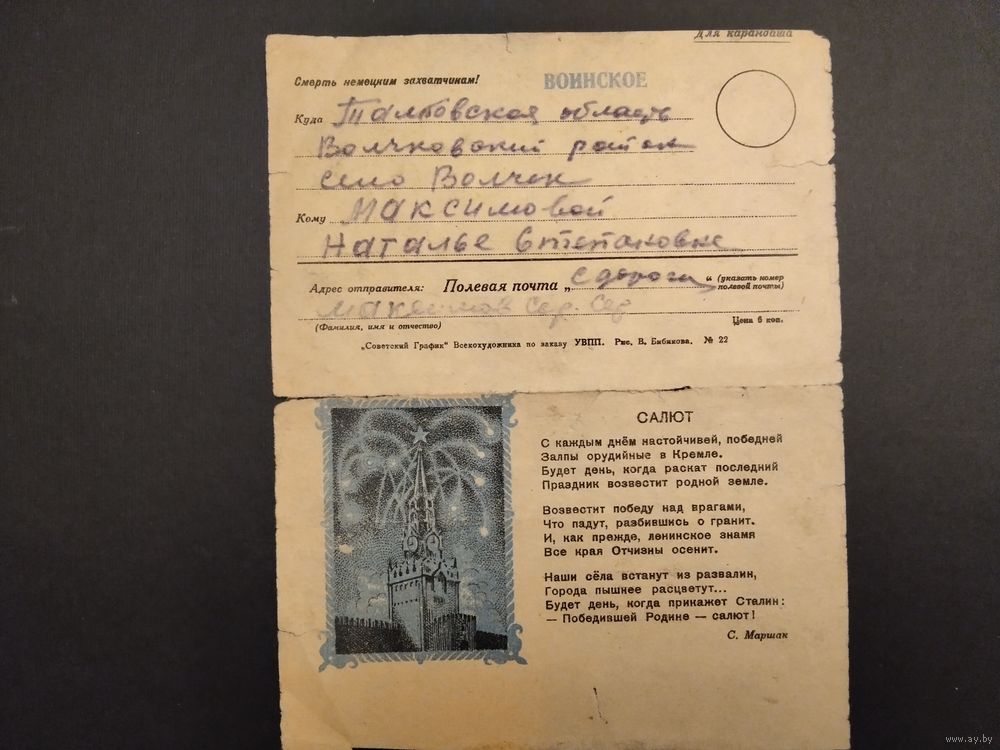 Для карандаша
Смерть немецким захватчикам! ВОИНСКОЕ
Куда Тамбовская область
Волчковский район
село Волчек
Кому Максимовой
Наталье Степановне
Адрес отправителя: Полевая почта „с дороги“ (указать номер полевой почты)
Максимов Сер. Сер
(Фамилия, имя и отчество) Цена 6 коп.
„Советский График“ Всекохудожника по заказу УВПП. Рис. В. Бибикова. № 22
САЛЮТ
С каждым днём настойчивей, победней
Залпы орудийные в Кремле.
Будет день, когда раскат последний
Праздник возвестит родной земле.
Возвестит победу над врагами,
Что падут, разбившись о гранит.
И, как прежде, ленинское знамя
Все края Отчизны осенит.
Наши сёла встанут из развалин,
Города пышнее расцветут...
Будет день, когда прикажет Сталин:
— Победившей Родине — салют!
С. Маршак
www.ay.by